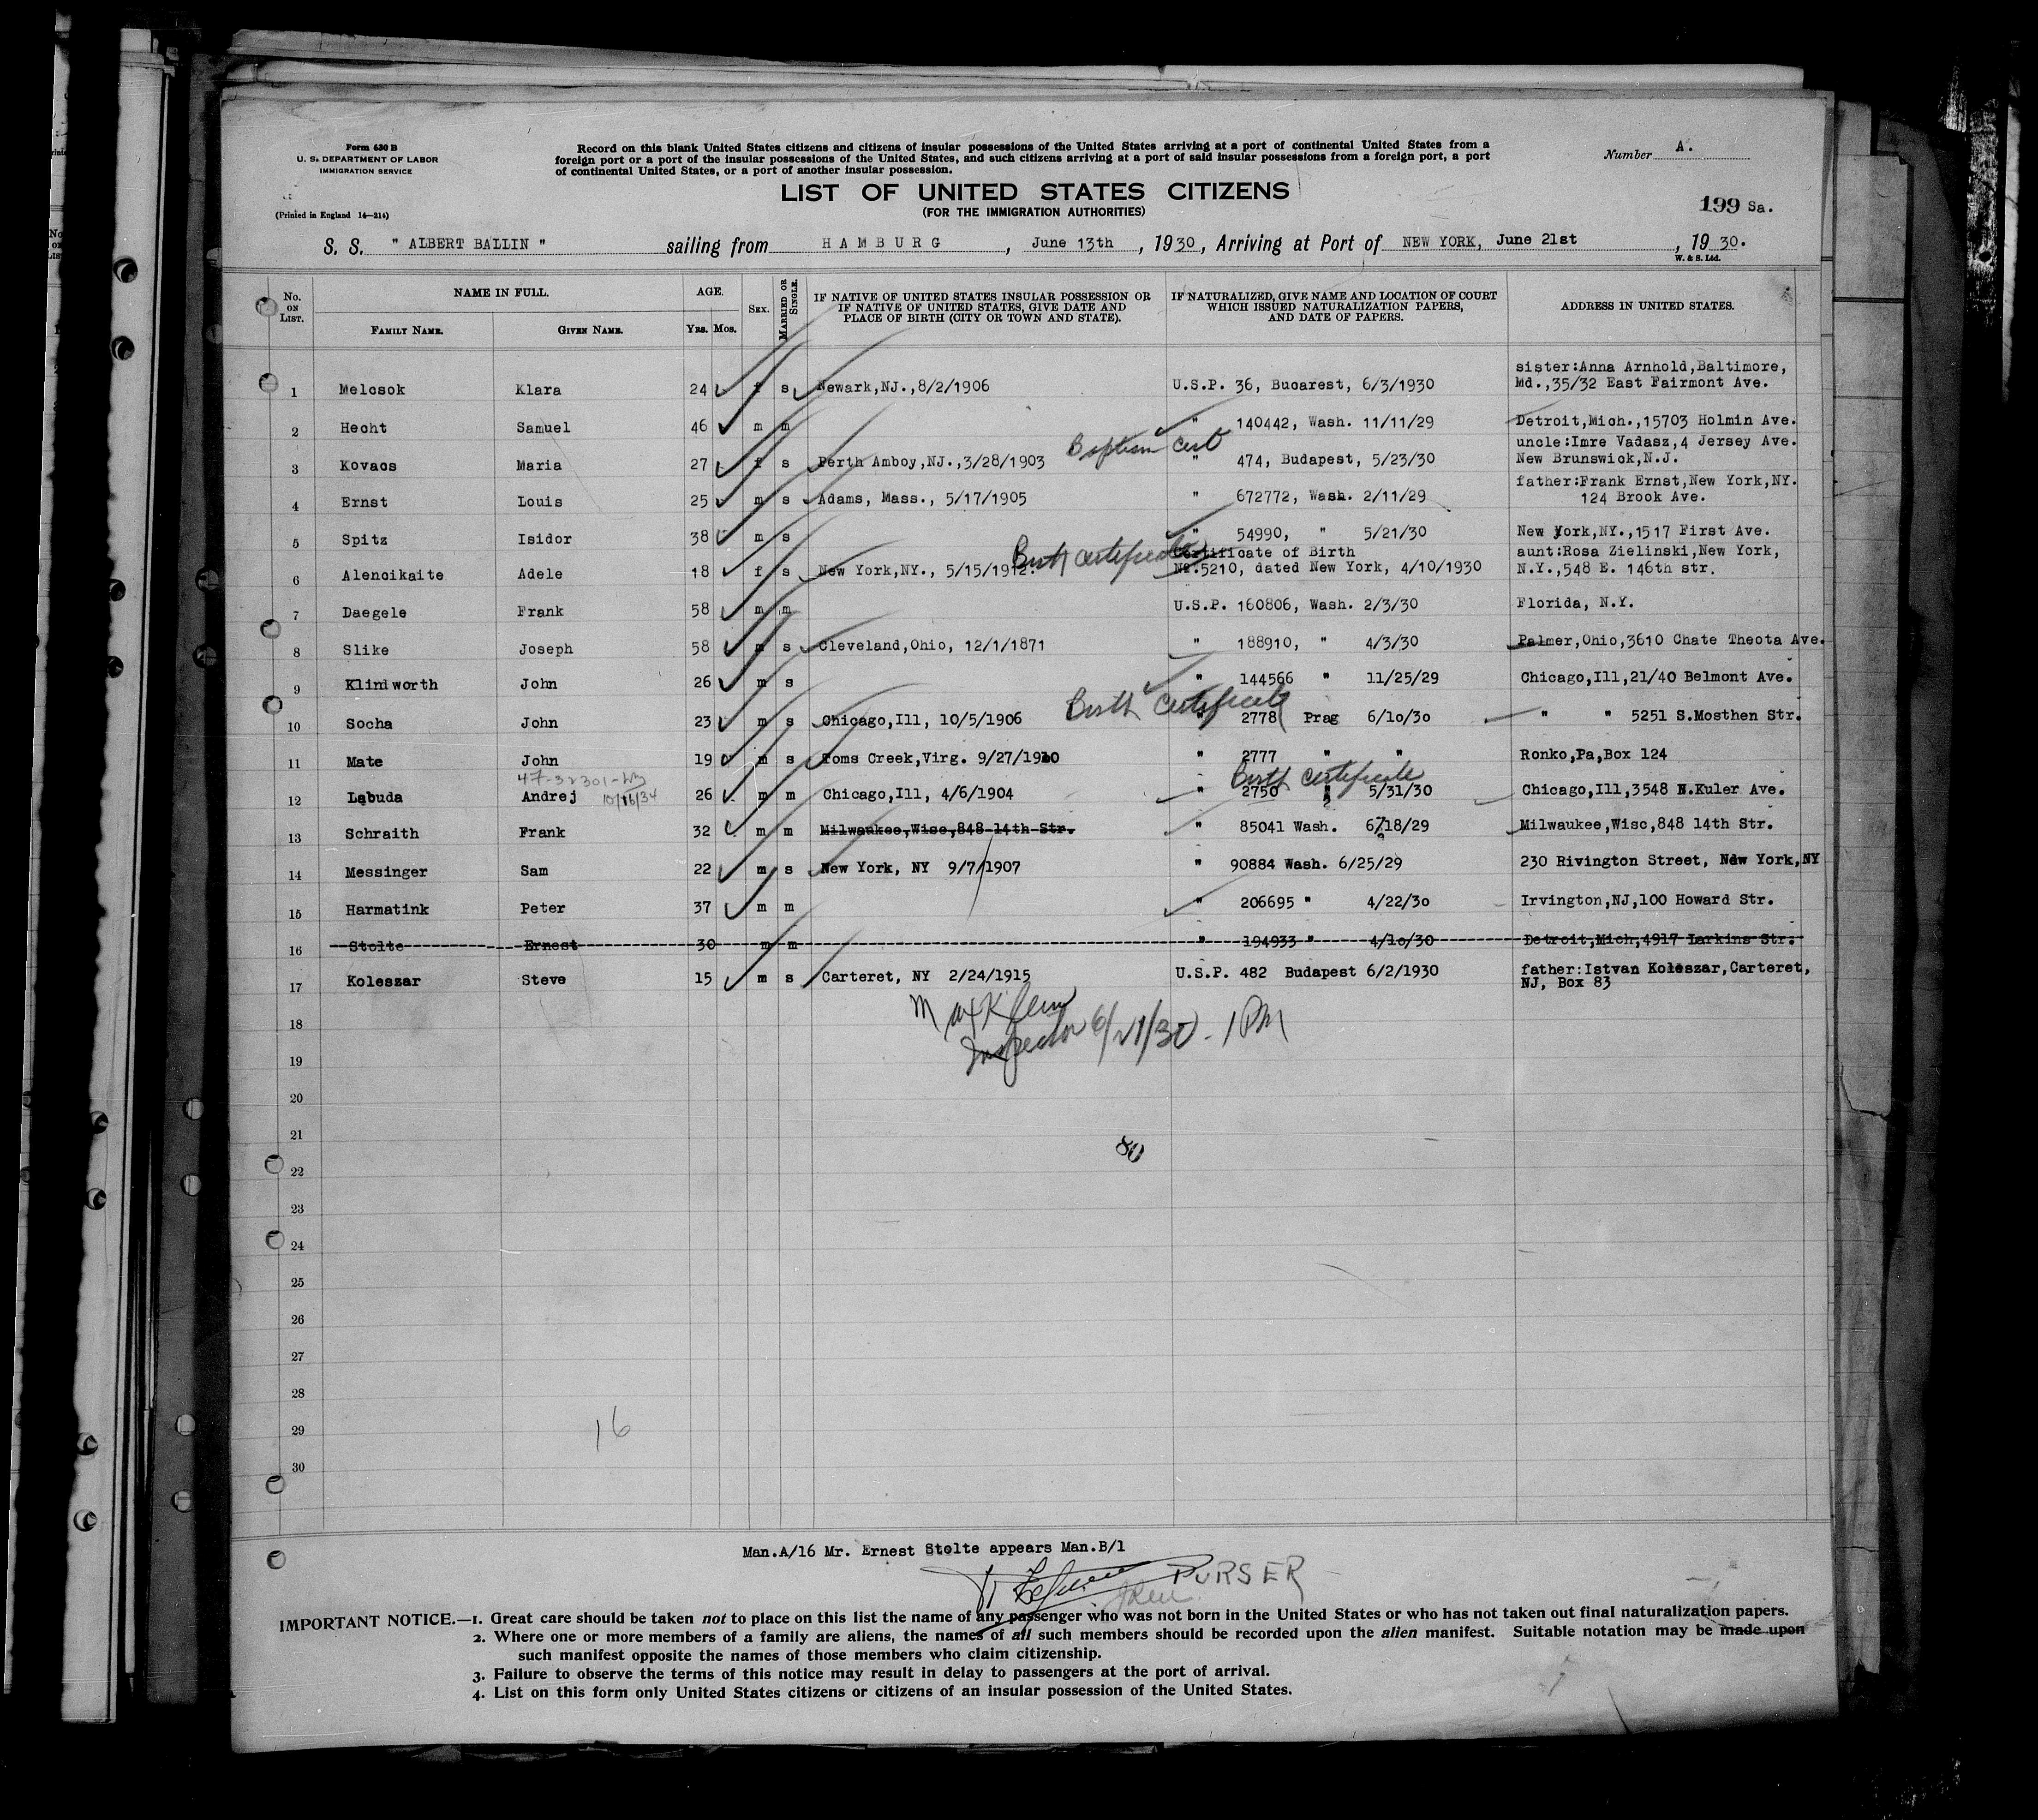 Form 630 B
U. S. DEPARTMENT OF LABOR
IMMIGRATION SERVICE
(Printed in England 14—214)
Record on this blank United States citizens and citizens of insular possessions of the United States arriving at a port of continental United States from a
foreign port or a port of the insular possessions of the United States, and such citizens arriving at a port of said insular possessions from a foreign port, a port
of continental United States, or a port of another insular possession.
Number A.
LIST OF UNITED STATES CITIZENS
(FOR THE IMMIGRATION AUTHORITIES)
199 Sa.
S. S. " ALBERT BALLIN " sailing from HAMBURG, June 13th, 1930, Arriving at Port of NEW YORK, June 21st, 1930.
W. & S. Ltd.
No. ON LIST. NAME IN FULL. FAMILY NAME. GIVEN NAME. AGE. YRS. MOS. SEX. MARRIED OR SINGLE. IF NATIVE OF UNITED STATES INSULAR POSSESSION OR IF NATIVE OF UNITED STATES, GIVE DATE AND PLACE OF BIRTH (CITY OR TOWN AND STATE). IF NATURALIZED, GIVE NAME AND LOCATION OF COURT WHICH ISSUED NATURALIZATION PAPERS, AND DATE OF PAPERS. ADDRESS IN UNITED STATES.
sister:Anna Arnhold,Baltimore,
1 Melcsok Klara 24 f s Newark,NJ.,8/2/1906 U.S.P. 36, Bucarest, 6/3/1930 Md.,35/32 East Fairmont Ave.
2 Hecht Samuel 46 m m " 140442, Wash. 11/11/29 Detroit,Mich.,15703 Holmin Ave.
Baptism Cert uncle:Imre Vadasz,4 Jersey Ave.
3 Kovacs Maria 27 f s Perth Amboy,NJ.,3/28/1903 " 474, Budapest, 5/23/30 New Brunswick,N.J.
father:Frank Ernst,New York,NY.
4 Ernst Louis 25 m s Adams, Mass., 5/17/1905 " 672772, Wash. 2/11/29 124 Brook Ave.
5 Spitz Isidor 38 m s " 54990, " 5/21/30 New York,NY.,1517 First Ave.
Birth certificate Certificate of Birth aunt:Rosa Zielinski,New York,
6 Alencikaite Adele 18 f s New York,NY., 5/15/1912. No.5210, dated New York, 4/10/1930 N.Y.,548 E. 146th str.
7 Daegele Frank 58 m m U.S.P. 160806, Wash. 2/3/30 Florida, N.Y.
8 Slike Joseph 58 m s Cleveland,Ohio, 12/1/1871 " 188910, " 4/3/30 Palmer,Ohio,3610 Chate Theota Ave.
9 Klindworth John 26 m s " 144566 " 11/25/29 Chicago,Ill,21/40 Belmont Ave.
Birth Certificate
10 Socha John 23 m s Chicago,Ill, 10/5/1906 " 2778 Prag 6/10/30 " " 5251 S.Mosthen Str.
11 Mate John 19 m s Toms Creek,Virg. 9/27/1910 " 2777 " " Ronko,Pa,Box 124
47-32301 10/16/34 Birth Certificate
12 Labuda Andrej 26 m m Chicago,Ill, 4/6/1904 " 2750 " 5/31/30 Chicago,Ill,3548 N.Kuler Ave.
13 Schraith Frank 32 m m Milwaukee,Wisc,848 14th Str. " 85041 Wash. 6/18/29 Milwaukee,Wisc,848 14th Str.
14 Messinger Sam 22 m s New York, NY 9/7/1907 " 90884 Wash. 6/25/29 230 Rivington Street, New York,NY
15 Harmatink Peter 37 m m " 206695 " 4/22/30 Irvington,NJ,100 Howard Str.
16 Stolte Ernest 30 m m " 194933 " 4/10/30 Detroit,Mich,4917 Larkins Str.
17 Koleszar Steve 15 m s Carteret, NY 2/24/1915 U.S.P. 482 Budapest 6/2/1930 father:Istvan Koleszar,Carteret,
NJ, Box 83
18 Max Klein
19 Inspector 6/21/30 - 1 PM
20
21
80
22
23
24
25
26
27
28
29
16
30
Man.A/16 Mr. Ernest Stolte appears Man.B/1
PURSER
IMPORTANT NOTICE.—1. Great care should be taken not to place on this list the name of any passenger who was not born in the United States or who has not taken out final naturalization papers.
2. Where one or more members of a family are aliens, the names of all such members should be recorded upon the alien manifest. Suitable notation may be made upon
such manifest opposite the names of those members who claim citizenship.
3. Failure to observe the terms of this notice may result in delay to passengers at the port of arrival.
4. List on this form only United States citizens or citizens of an insular possession of the United States.